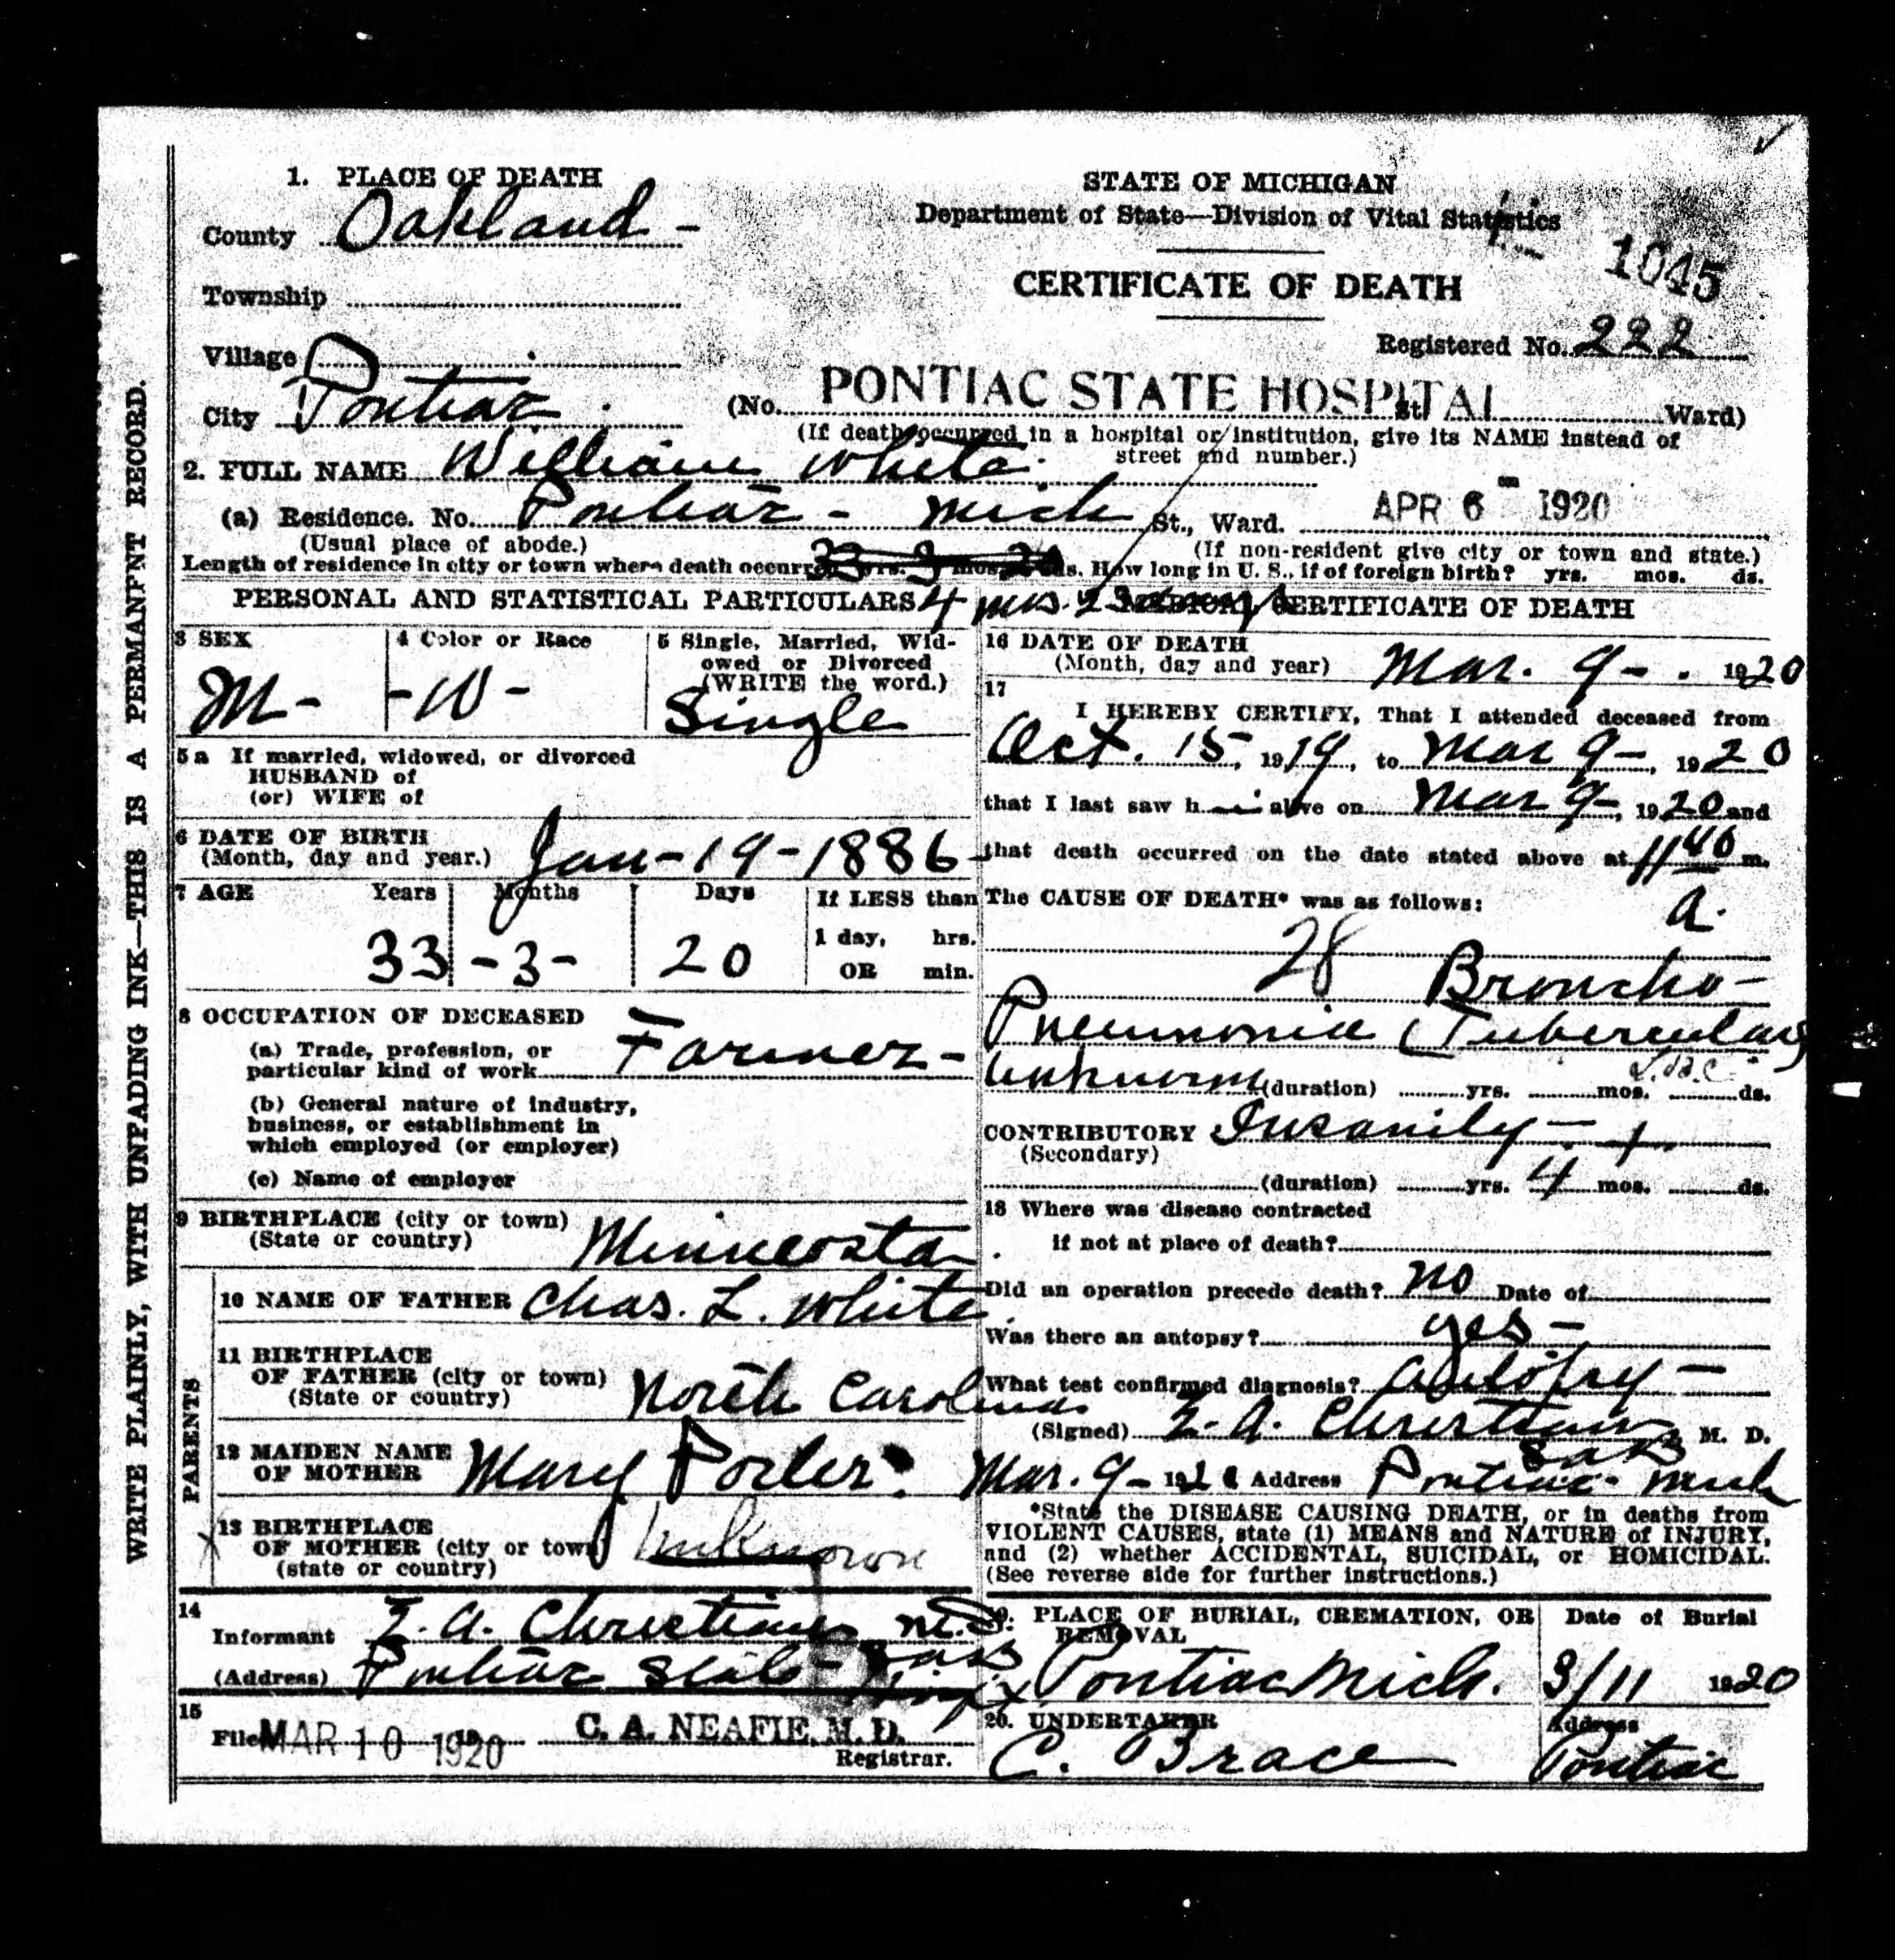 1. PLACE OF DEATH
County Oakland -
Township
Village
City Pontiac.
STATE OF MICHIGAN
Department of State—Division of Vital Statistics
1045
CERTIFICATE OF DEATH
Registered No. 222
(No. PONTIAC STATE HOSPITAL St. Ward)
(If death occurred in a hospital or institution, give its NAME instead of
street and number.)
2. FULL NAME William White.
APR 6 1920
(a) Residence. No. Pontiac - Mich St., Ward.
(Usual place of abode.)
(If non-resident give city or town and state.)
Length of residence in city or town where death occurred 33 yrs. 3 mos. 20 ds. How long in U. S., if of foreign birth? yrs. mos. ds.
4 mos. 23 days
PERSONAL AND STATISTICAL PARTICULARS
3 SEX
M-
4 Color or Race
-W-
5 Single, Married, Wid-
owed or Divorced
(WRITE the word.)
Single
5a If married, widowed, or divorced
HUSBAND of
(or) WIFE of
6 DATE OF BIRTH
(Month, day and year.) Jan-19-1886-
7 AGE Years Months Days If LESS than
1 day, hrs.
OR min.
33 -3- 20
8 OCCUPATION OF DECEASED
(a) Trade, profession, or
particular kind of work Farmer-
(b) General nature of industry,
business, or establishment in
which employed (or employer)
(c) Name of employer
9 BIRTHPLACE (city or town)
(State or country) Minneosta
PARENTS
10 NAME OF FATHER Chas. L. White
11 BIRTHPLACE
OF FATHER (city or town)
(State or country) North Carolina
12 MAIDEN NAME
OF MOTHER Mary Porter?
13 BIRTHPLACE
OF MOTHER (city or town)
(state or country) Unknown
14
Informant E. A. Christian M.D.
(Address) Pontiac State Hosp
15
Filed MAR 10 1920 C. A. NEAFIE, M. D.
Registrar.
MEDICAL CERTIFICATE OF DEATH
16 DATE OF DEATH
(Month, day and year) Mar. 9-. 1920
17
I HEREBY CERTIFY, That I attended deceased from
Oct. 15, 1919, to Mar 9-, 1920
that I last saw h i alive on Mar 9-, 1920 and
that death occurred on the date stated above at 1140 m.
a.
The CAUSE OF DEATH* was as follows:
28 Broncho-
Pneumonia (Tubercular)
Unknown (duration) yrs. mos. ds.
CONTRIBUTORY Insanity -
(Secondary)
(duration) yrs. 4 mos. ds.
18 Where was disease contracted
if not at place of death?
Did an operation precede death? No Date of
Was there an autopsy? yes-
What test confirmed diagnosis? Autopsy-
(Signed) E. A. Christian M. D.
Mar. 9- 192 Address Pontiac- Mich
*State the DISEASE CAUSING DEATH, or in deaths from
VIOLENT CAUSES, state (1) MEANS and NATURE of INJURY,
and (2) whether ACCIDENTAL, SUICIDAL, or HOMICIDAL.
(See reverse side for further instructions.)
19. PLACE OF BURIAL, CREMATION, OR
REMOVAL
Pontiac Mich.
Date of Burial
3/11 1920
20. UNDERTAKER
C. Brace
Address
Pontiac
WRITE PLAINLY, WITH UNFADING INK—THIS IS A PERMANENT RECORD.